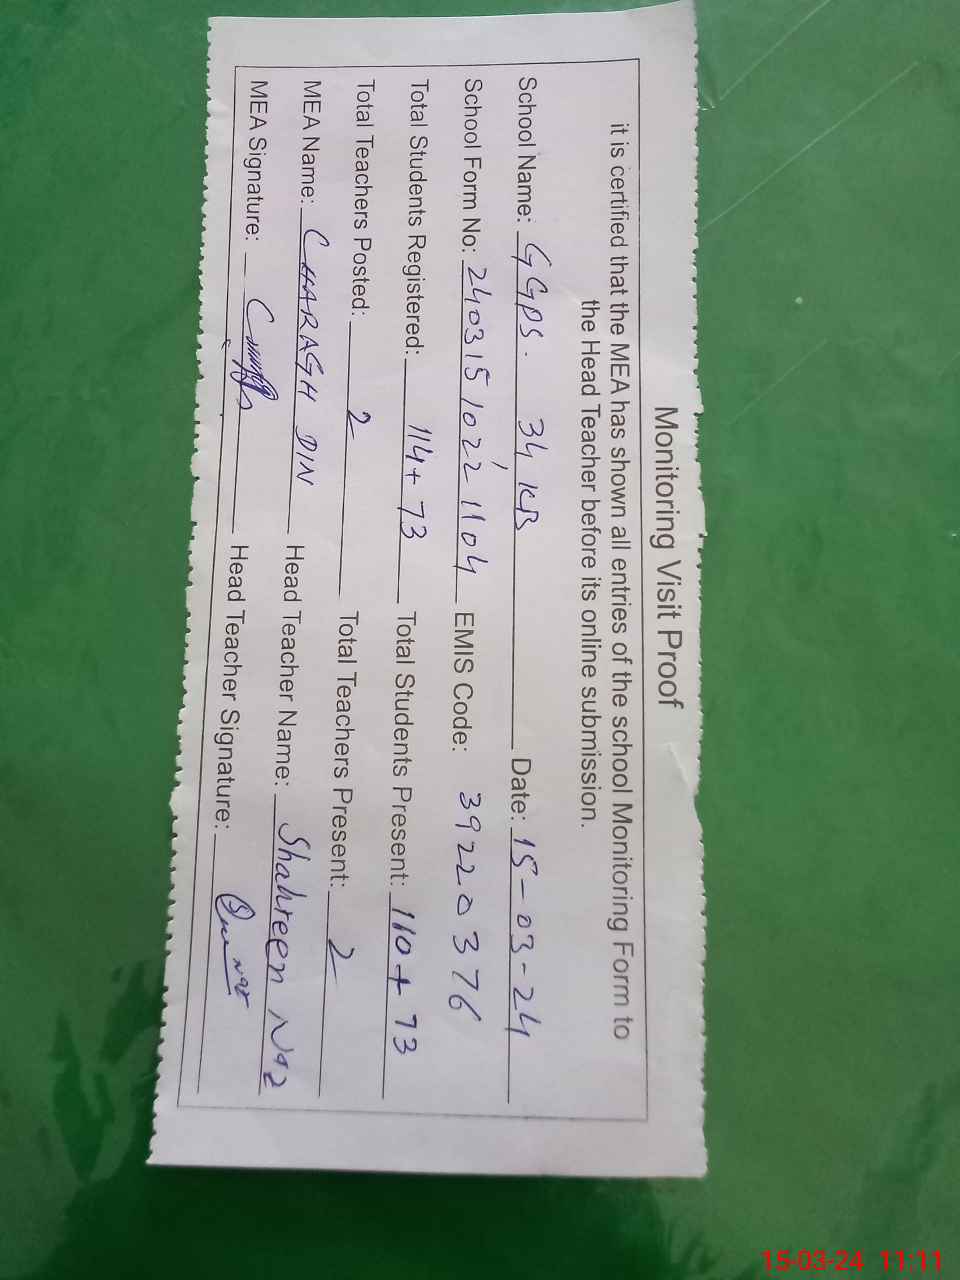 Monitoring Visit Proof
it is certified that the MEA has shown all entries of the school Monitoring Form to
the Head Teacher before its online submission.
School Name: GGPS. 34 KB Date: 15-03-24
School Form No: 24031510221104 EMIS Code: 39220376
Total Students Registered: 114+73 Total Students Present: 110+73
Total Teachers Posted: 2 Total Teachers Present: 2
MEA Name: CHARAGH DIN Head Teacher Name: Shahreen Naz
MEA Signature: Head Teacher Signature:
15-03-24 11:11